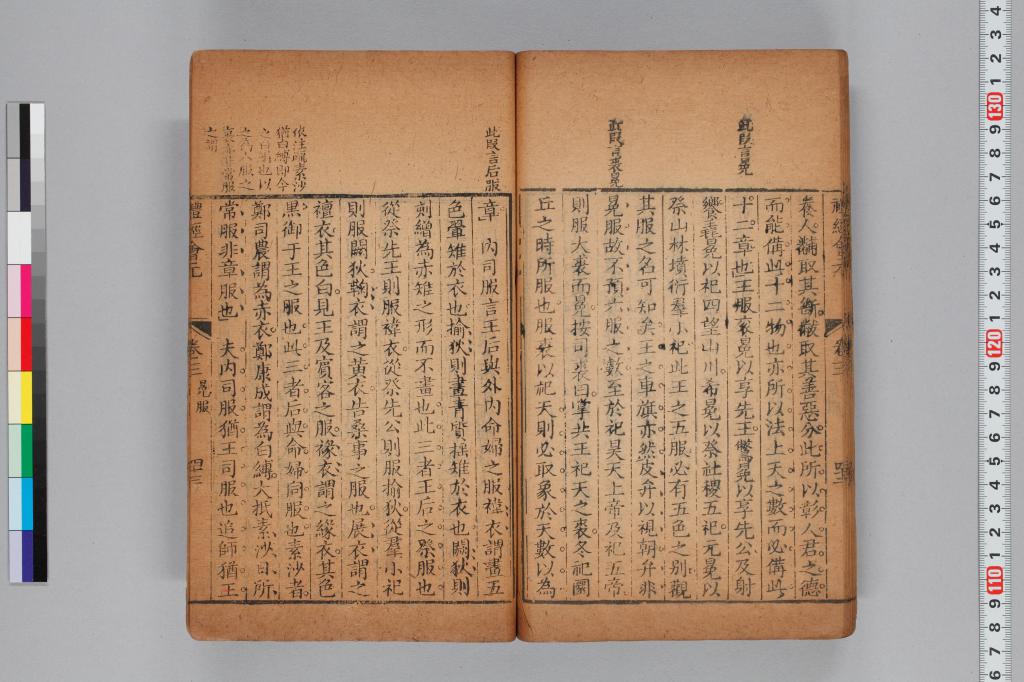 此段言冕
此段言裘冕
養人黼取其斷黻取其善惡分此所以彰人君之德
而能備此十二物也亦所以法上天之數而必備此
十二章也王服衮冕以享先王鷩冕以享先公及射
饗毳冕以祀四望山川希冕以祭社稷五祀元冕以
祭山林墳衍羣小祀此王之五服必有五色之别觀
其服之名可知矣王之車旗亦然皮弁以視朝弁非
冕服故不預六服之數至於祀昊天上帝及祀五帝
則服大裘而冕按司裘曰掌共王祀天之裘冬祀圜
丘之時所服也服裘以祀天則必取象於天數以為
此段言后服
章 內司服言王后與外內命婦之服褘衣謂畫五
色翬雉於衣也揄狄則畫青質搖雉於衣也闕狄則
刻繒為赤雉之形而不畫也此三者王后之祭服也
從祭先王則服褘衣從祭先公則服揄狄從羣小祀
則服闕狄鞠衣謂之黃衣告桑事之服也展衣謂之
襢衣其色白見王及賓客之服褖衣謂之緣衣其色
黑御于王之服也此三者后與命婦同服也素沙者
鄭司農謂為赤衣鄭康成謂為白縳大抵素沙曰所
常服非章服也 夫內司服猶王司服也追師猶王
依注疏素沙
猶白縳即今
之謂
禮經會元
卷三
冕服